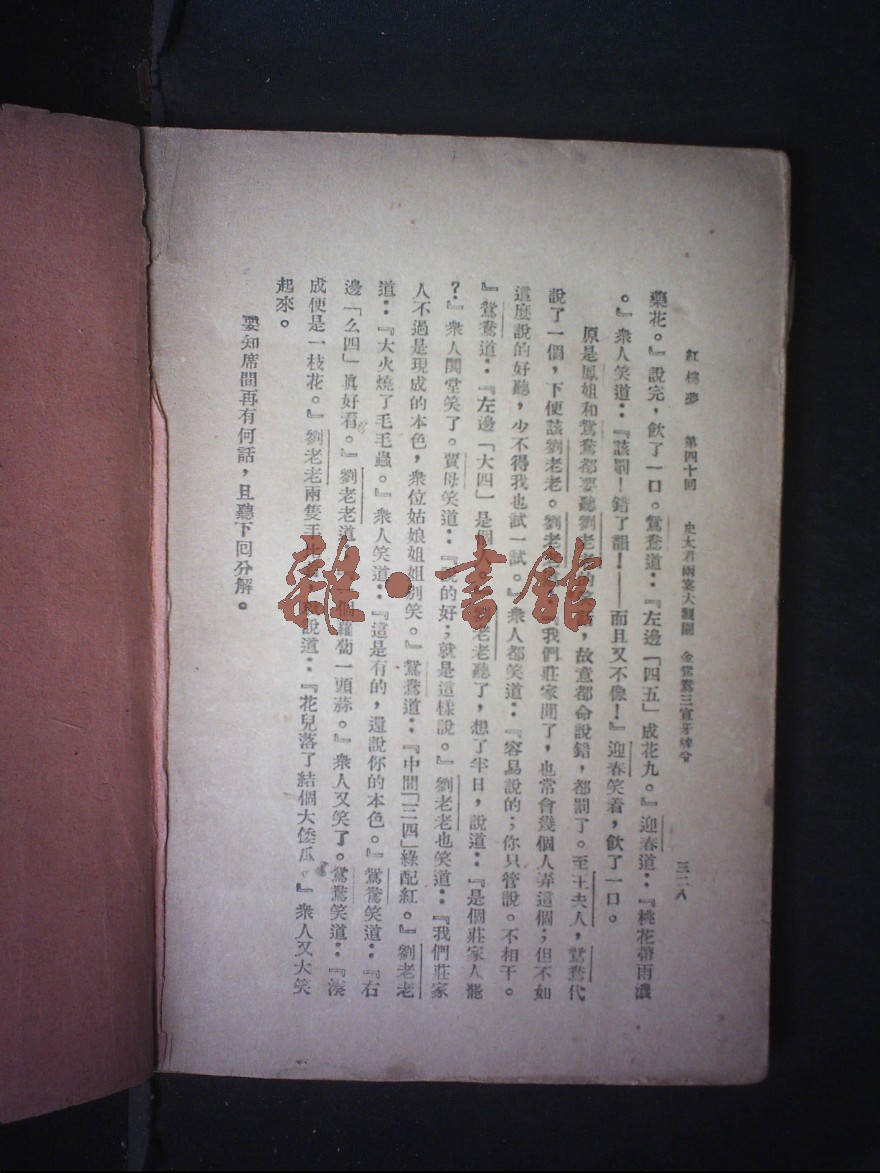 紅樓夢　第四十回　史太君兩宴大觀園　金鴛鴦三宣牙牌令　三二八
藥花。』說完，飮了一口。鴛鴦道：『左邊「四五」成花九。』迎春道：『桃花帶雨濃
。』衆人笑道：『該罰！錯了韻！——而且又不像！』迎春笑着，飮了一口。
原是鳳姐和鴛鴦都要聽劉老老的笑話，故意都命說錯，都罰了。至王夫人，鴛鴦代
說了一個，下便該劉老老。劉老老道：『我們莊家閒了，也常會幾個人弄這個；但不如
這麼說的好聽，少不得我也試一試。』衆人都笑道：『容易說的；你只管說。不相干。
』鴛鴦道：『左邊「大四」是個人。』劉老老聽了，想了半日，說道：『是個莊家人罷
？』衆人鬨堂笑了。賈母笑道：『說的好；就是這樣說。』劉老老也笑道：『我們莊家
人不過是現成的本色，衆位姑娘姐姐別笑。』鴛鴦道：『中間「三四」綠配紅。』劉老老
道：『大火燒了毛毛蟲。』衆人笑道：『這是有的，還說你的本色。』鴛鴦笑道：『右
邊「么四」眞好看。』劉老老道：『一個蘿蔔一頭蒜。』衆人又笑了。鴛鴦笑道：『湊
成便是一枝花。』劉老老兩隻手比着，說道：『花兒落了結個大倭瓜。』衆人又大笑
起來。
要知席間再有何話，且聽下回分解。
雜·書館